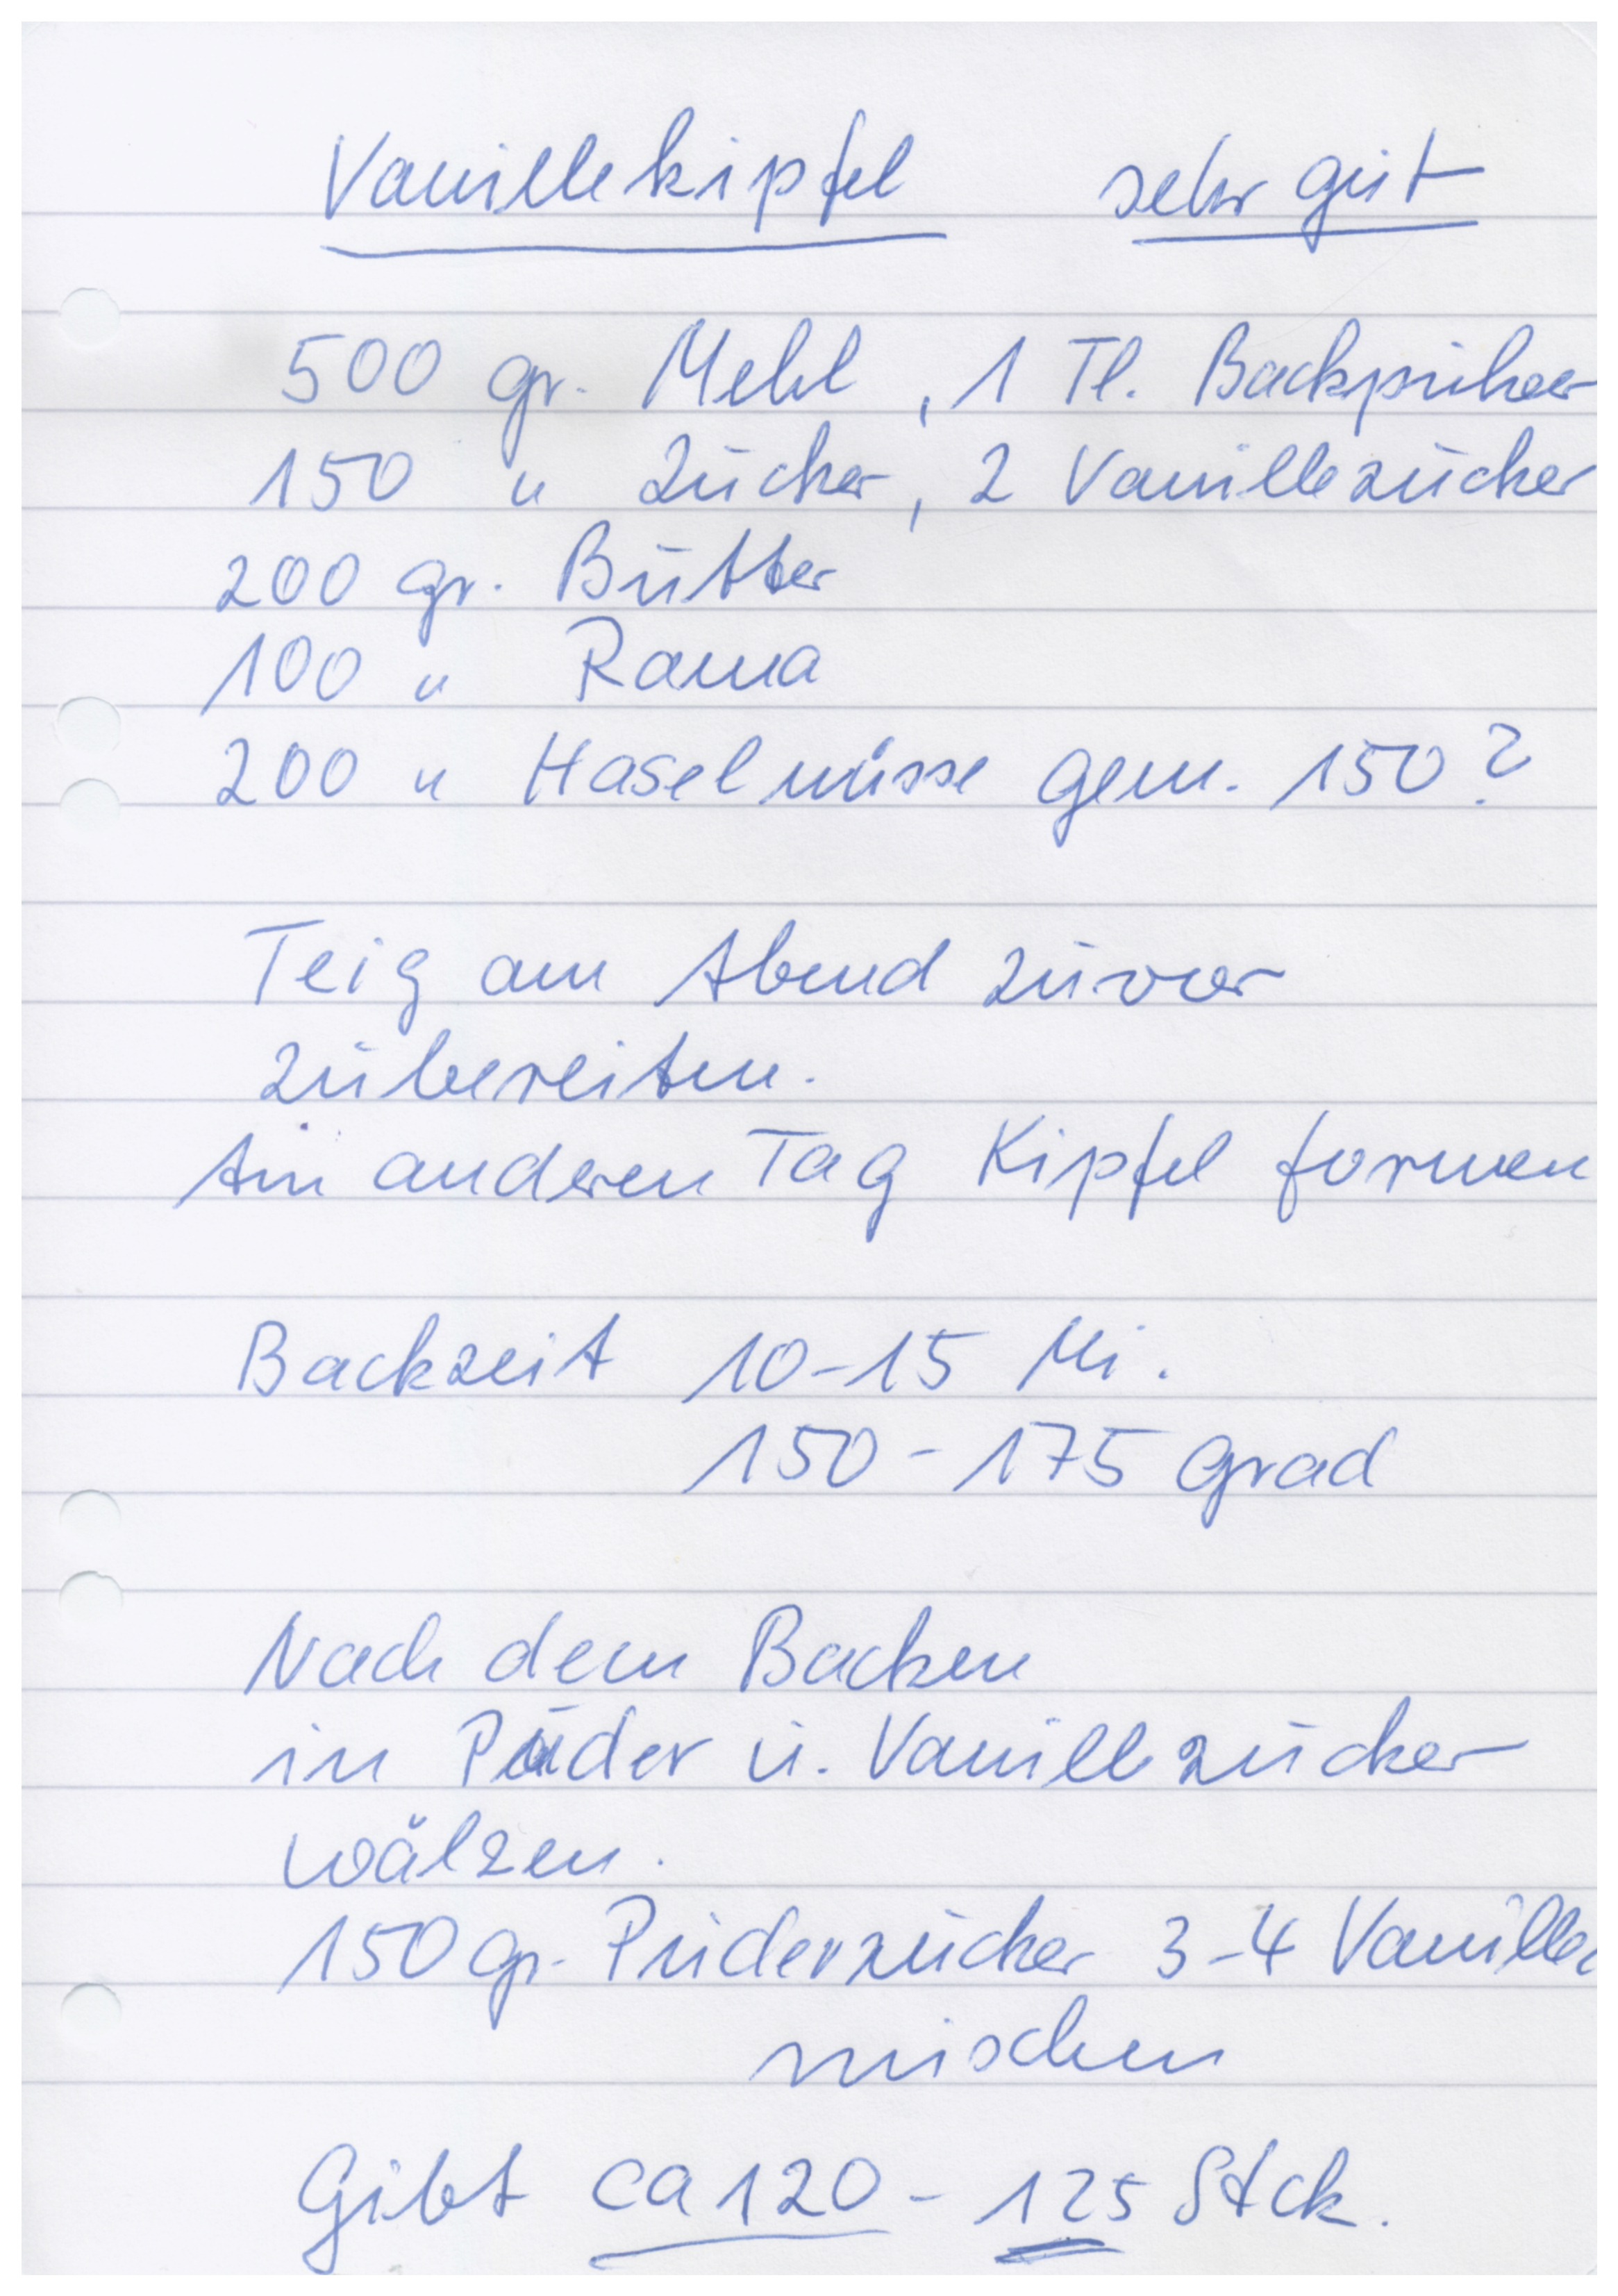 Vanillekipfel sehr gut
500 gr. Mehl, 1 Tl. Backpulver
150 " Zucker, 2 Vanillezucker
200 gr. Butter
100 " Rama
200 " Haselnüsse gem. 150?
Teig am Abend zuvor
zubereiten.
Am anderen Tag Kipfel formen
Backzeit 10-15 Mi.
150 - 175 Grad
Nach dem Backen
in Puder u. Vanillezucker
wälzen.
150 gr. Puderzucker 3-4 Vanille
mischen
Gibt ca 120 - 125 Stck.